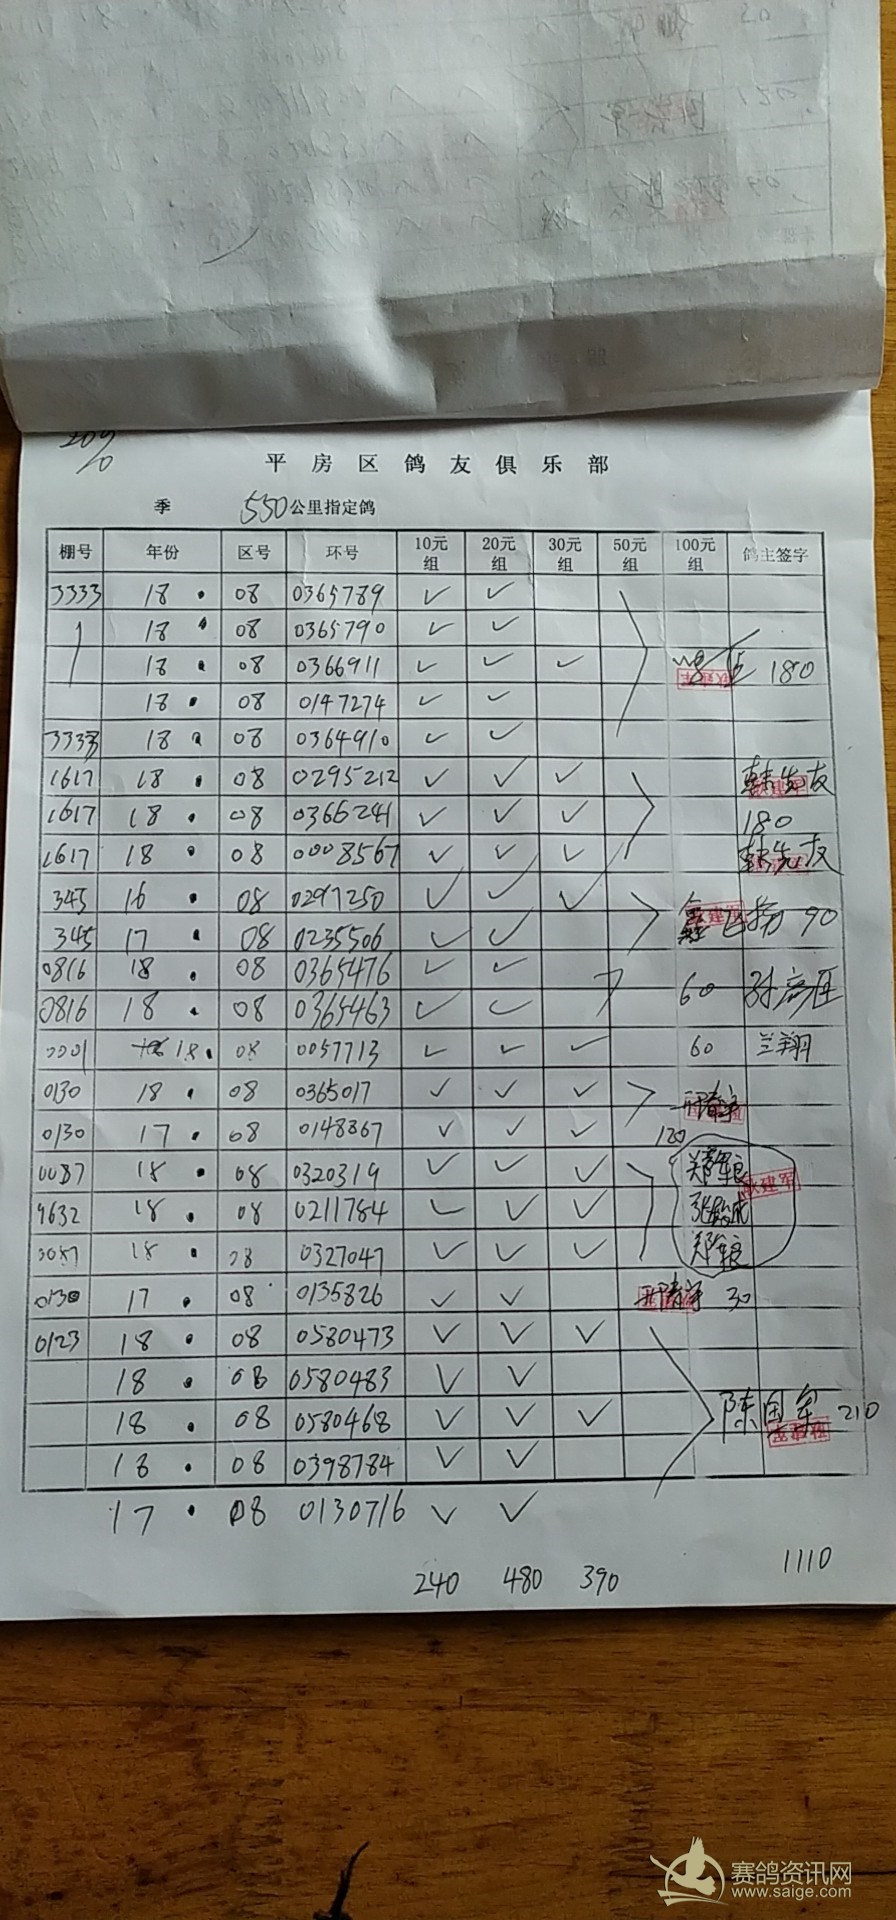 平房区鸽友俱乐部
季 550公里指定鸽
棚号 年份 区号 环号 10元组 20元组 30元组 50元组 100元组 鸽主签字
3333 18 · 08 0365789 ✓ ✓
18 · 08 0365790 ✓ ✓
18 · 08 0366911 ✓ ✓ ✓ 180
18 · 08 0147274 ✓ ✓
3333 18 · 08 0364910 ✓ ✓
1617 18 · 08 0295212 ✓ ✓ ✓ 韩先友
1617 18 · 08 0366241 ✓ ✓ ✓ 180
1617 18 · 08 0008567 ✓ ✓ ✓ 韩先友
345 16 · 08 0297250 ✓ ✓ ✓ 90
345 17 · 08 0235506 ✓ ✓
0816 18 · 08 0365476 ✓ ✓ 60
0816 18 · 08 0365463 ✓ ✓
0001 18 · 08 0057713 ✓ ✓ ✓ 60 兰翔
0130 18 · 08 0365017 ✓ ✓ ✓
0130 17 · 08 0148367 ✓ ✓ ✓ 120
0087 18 · 08 0320319 ✓ ✓ ✓
9632 18 · 08 0211784 ✓ ✓ ✓
18 · 08 0327047 ✓ ✓ ✓
0130 17 · 08 0135826 ✓ ✓ 30
0123 18 · 08 0580473 ✓ ✓ ✓
18 · 08 0580483 ✓ ✓
18 · 08 0580468 ✓ ✓ ✓ 陈国军 210
18 · 08 0398784 ✓ ✓
17 · 08 0130716 ✓ ✓
240 480 390 1110
赛鸽资讯网
www.saige.com